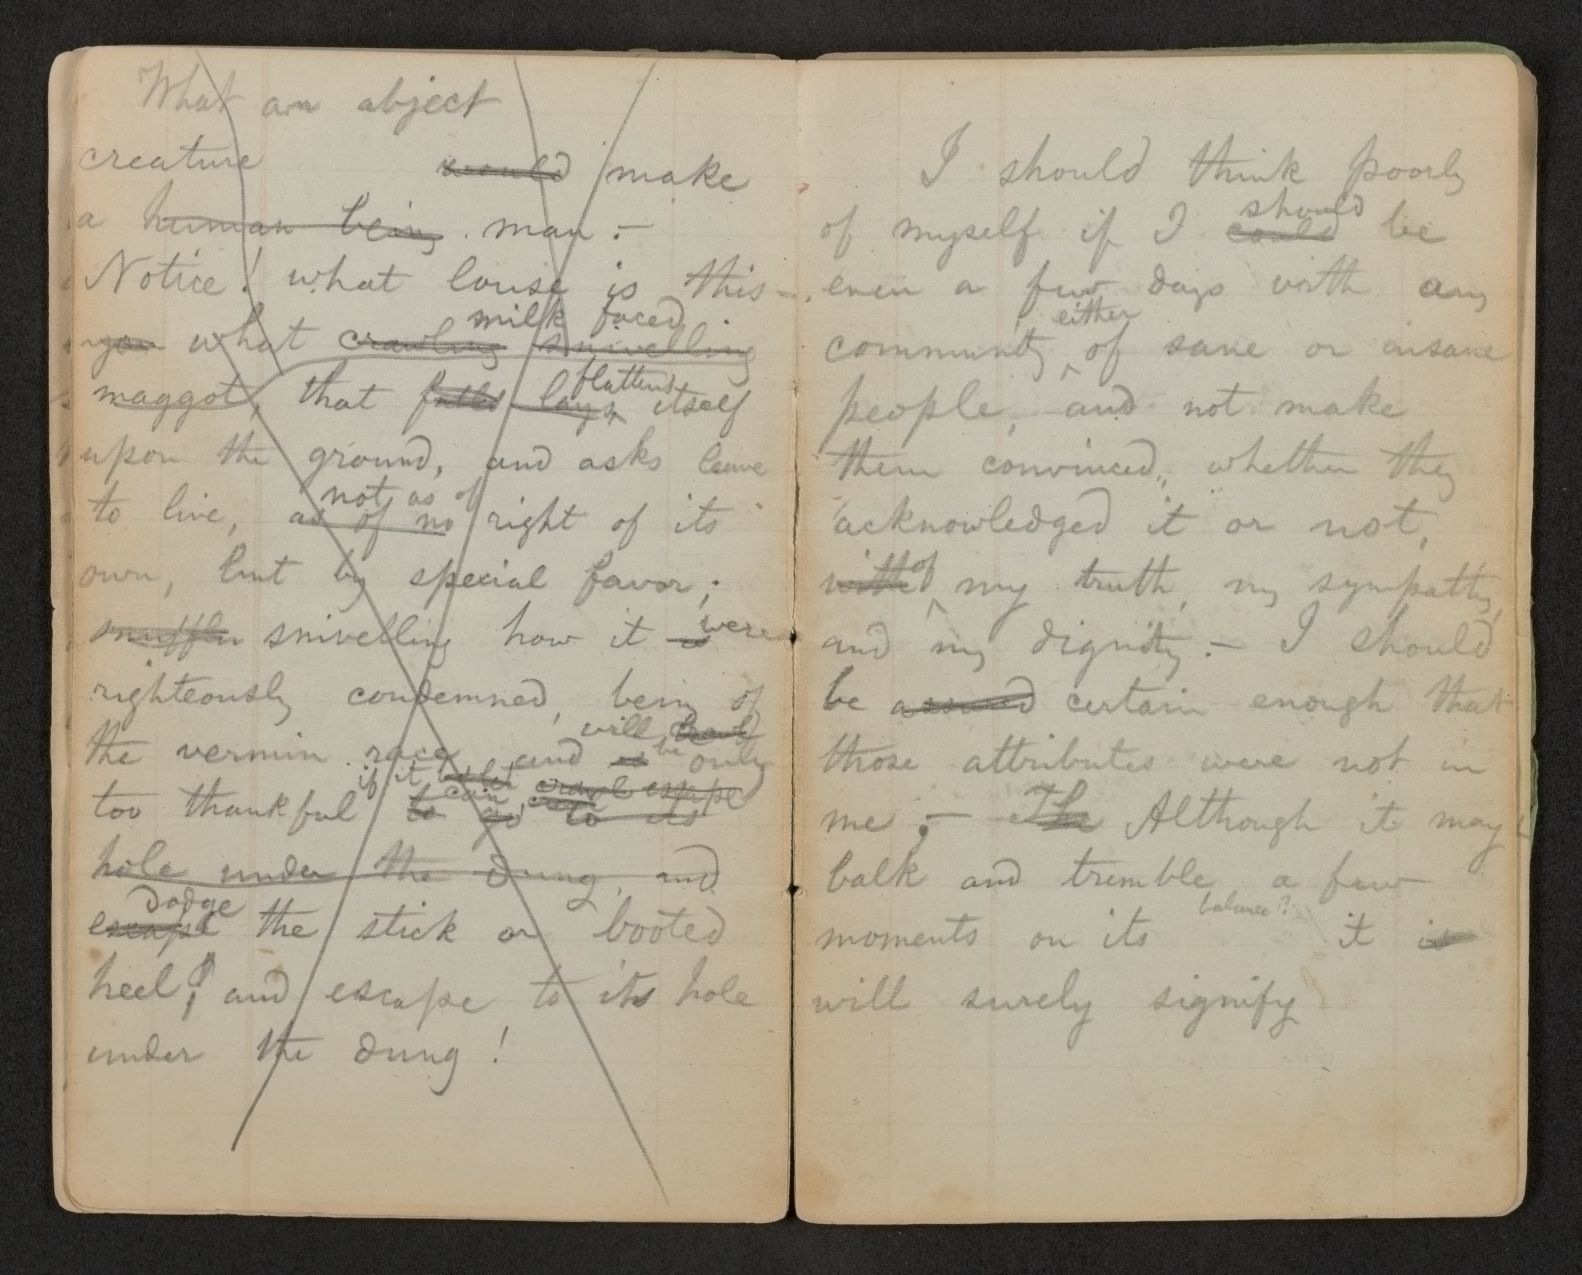 What an abject
creature would make
a human being man.—
Notice! what louse is this—
you what crawling snivelling milk faced
maggot, that falls lays flattens itself
upon the ground, and asks leave
to live, as of no not as of right of its
own, but by special favor;
snuffles snivelling how it is were
righteously condemned, being of
the vermin race, and is will be only
too thankful if it can to go crawl escape to its
hole under the dung, and
escape dodge the stick or booted
heel! and escape to its hole
under the dung!
I should think poorly
of myself if I could should be
even a few days with any
community either of sane or insane
people, and not make
them convinced, whether they
acknowledged it or not,
with of my truth, my sympathy,
and my dignity.— I should
be assured certain enough that
those attributes were not in
me.— The Although it may
balk and tremble a few
moments on its balance? it is
will surely signify